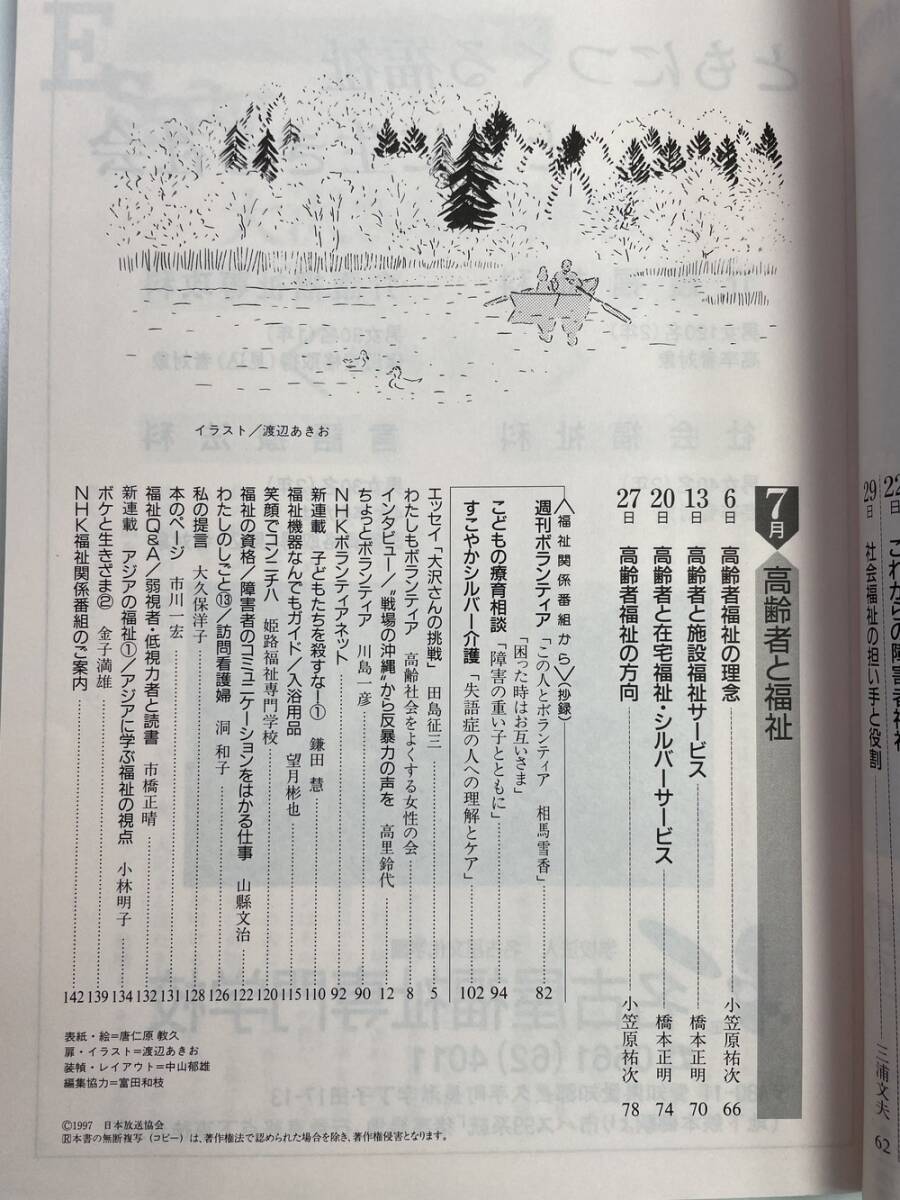 22日 これからの障害者福祉
29日 社会福祉の担い手と役割 三浦文夫 62
イラスト／渡辺あきお
7月 高齢者と福祉
6日 高齢者福祉の理念 小笠原祐次 66
13日 高齢者と施設福祉サービス 橋本正明 70
20日 高齢者と在宅福祉・シルバーサービス 橋本正明 74
27日 高齢者福祉の方向 小笠原祐次 78
〈福祉関係番組から〉(抄録)
週刊ボランティア「この人とボランティア 相馬雪香」 82
「困った時はお互いさま」
こどもの療育相談「障害の重い子とともに」 94
すこやかシルバー介護「失語症の人への理解とケア」 102
エッセイ「大沢さんの挑戦」 田島征三 5
わたしもボランティア 高齢社会をよくする女性の会 8
インタビュー／“戦場の沖縄”から反暴力の声を 高里鈴代 12
ちょっとボランティア 川島一彦 90
NHKボランティアネット 92
新連載 子どもたちを殺すなー① 鎌田 慧 110
福祉機器なんでもガイド／入浴用品 望月彬也 115
笑顔でコンニチハ 姫路福祉専門学校 120
福祉の資格／障害者のコミュニケーションをはかる仕事 山縣文治 122
わたしのしごと⑬／訪問看護婦 洞 和子 126
私の提言 大久保洋子 128
本のページ 市川一宏 131
福祉Q&A／弱視者・低視力者と読書 市橋正晴 132
新連載 アジアの福祉①／アジアに学ぶ福祉の視点 小林明子 134
ボケと生きざま㉒ 金子満雄 139
NHK福祉関係番組のご案内 142
表紙・絵＝唐仁原教久
扉・イラスト＝渡辺あきお
装幀・レイアウト＝中山郁雄
編集協力＝富田和枝
©1997 日本放送協会
Ⓡ本書の無断複写（コピー）は、著作権法で認められた場合を除き、著作権侵害となります。